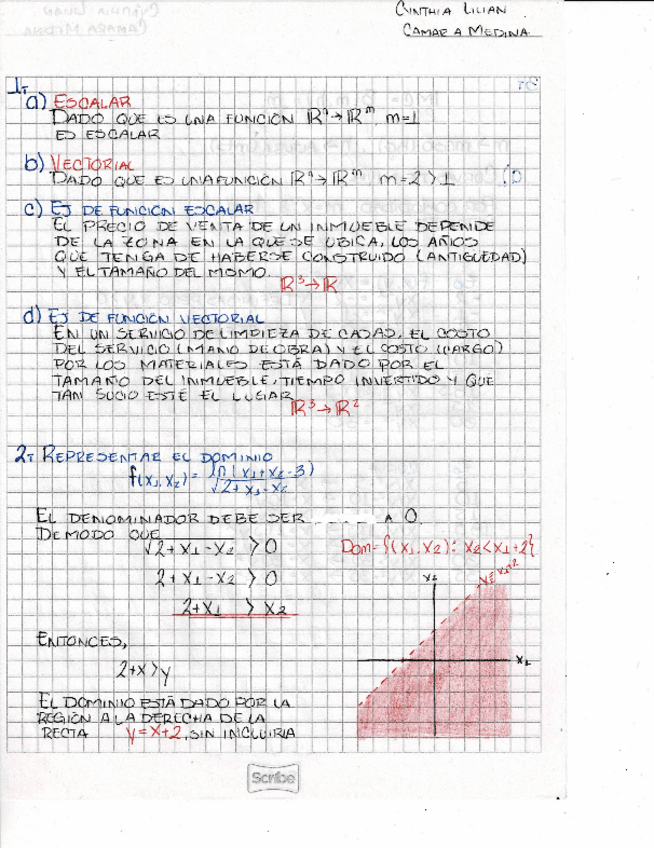 CYNTHIA LILIAN
CAMARA MEDINA.
1.-
a) ESCALAR
DADO QUE ES UNA FUNCIÓN ℝⁿ→ℝᵐ m=1
ES ESCALAR
b) VECTORIAL
DADO QUE ES UNA FUNCIÓN ℝⁿ→ℝᵐ m=2>1
c) EJ DE FUNCIÓN ESCALAR
EL PRECIO DE VENTA DE UN INMUEBLE DEPENDE
DE LA ZONA EN LA QUE SE UBICA, LOS AÑOS
QUE TENGA DE HABERSE CONSTRUIDO (ANTIGÜEDAD)
Y EL TAMAÑO DEL MISMO.
ℝ³→ℝ
d) EJ DE FUNCIÓN VECTORIAL
EN UN SERVICIO DE LIMPIEZA DE CASAS, EL COSTO
DEL SERVICIO (MANO DE OBRA) Y EL COSTO (CARGO)
POR LOS MATERIALES ESTÁ DADO POR EL
TAMAÑO DEL INMUEBLE, TIEMPO INVERTIDO Y QUE
TAN SUCIO ESTÉ EL LUGAR
ℝ³→ℝ²
2.- REPRESENTAR EL DOMINIO
f(x₁,x₂) = ln(x₁+x₂-3) / √2+x₁-x₂
EL DENOMINADOR DEBE SER A 0.
DE MODO QUE
√2+x₁-x₂ > 0
Dom={(x₁,x₂): x₂<x₁+2}
2+x₁-x₂ > 0
2+x₁ > x₂
x₂
x₂=x₁+2
x₁
ENTONCES,
2+x>y
EL DOMINIO ESTÁ DADO POR LA
REGIÓN A LA DERECHA DE LA
RECTA y=x+2, SIN INCLUIRLA
Scribe